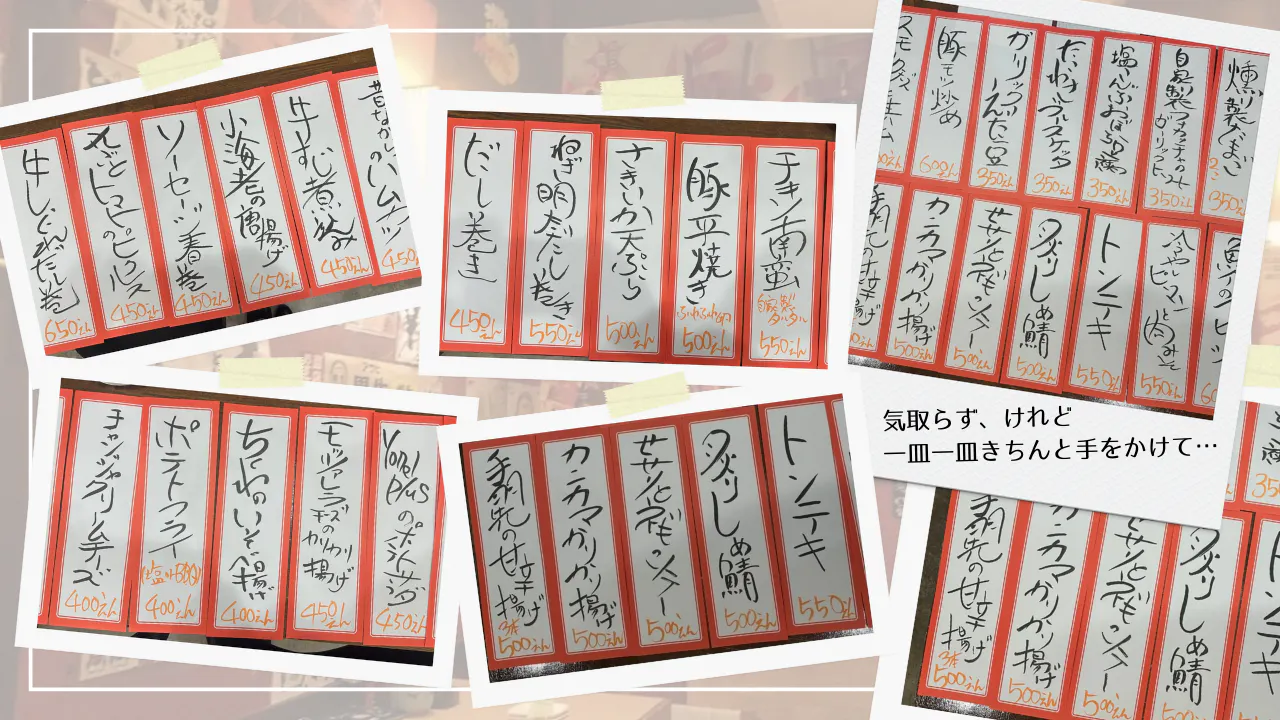 牛しぐれだし巻
650えん
丸ごとトマトのピクルス
450えん
ソーセージ春巻
450えん
小海老の唐揚げ
450えん
牛すじ煮込み
450えん
昔なつかしのハムカツ
450
だし巻き
450えん
ねぎ明太だし巻き
550えん
さきいか天ぷら
500えん
豚平焼き
500えん
チキン南蛮
自家製タルタル
550えん
豚モツ炒め
600えん
ガリックえだ豆
350えん
たくわんブルスケッタ
350えん
塩こんぶおぼろ豆腐
350えん
自家製フォカッチャのガーリックトースト
350えん
燻製たまご
2コ
350えん
手羽先の甘辛揚げ
カニカマカリカリ揚げ
500えん
500えん
炙りしめ鯖
500えん
トンテキ
550えん
冷やしピーマンと肉みそ
550えん
気取らず、けれど
一皿一皿きちんと手をかけて…
チャンジャクリームチーズ
400えん
ポテトフライ
400えん
ちくわのいそべ揚げ
400えん
モッツァレラチーズのカリカリ揚げ
450
Yorel Plusのポテトサラダ
450えん
手羽先の甘辛揚げ
3本
500えん
カニカマカリカリ揚げ
500えん
500えん
炙りしめ鯖
500えん
トンテキ
550えん
手羽先の甘辛揚げ
3本
500えん
カニカマカリカリ揚げ
500えん
500えん
炙りしめ鯖
500えん